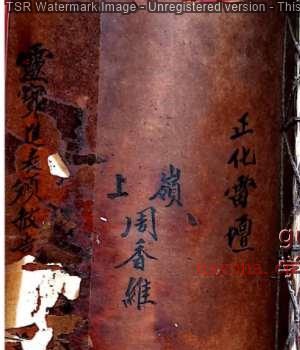 TSR Watermark Image - Unregistered version - This
正化雷壇
嶺、
上周香維
靈寶進表頒赦